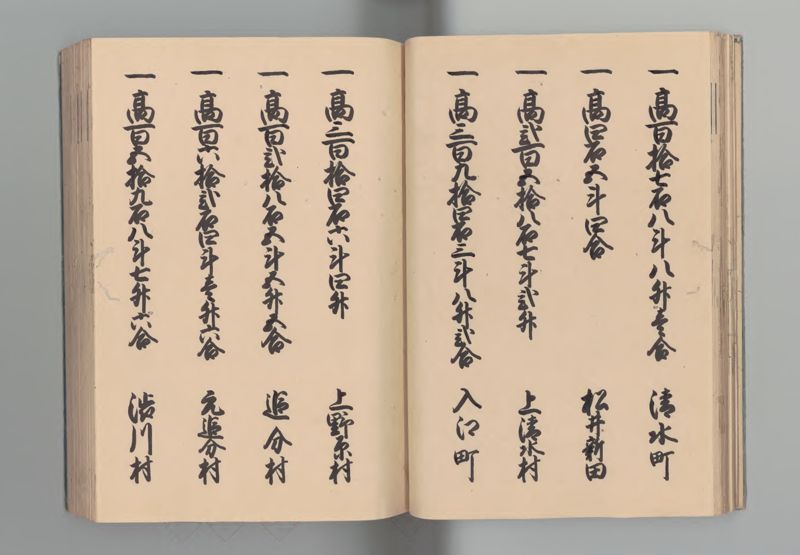 一高百拾七石八斗八升壱合 清水町
一高四石五斗四合 松井新田
一高弐百五拾八石七斗弐升 上清水村
一高三百九拾四石三斗八升弐合 入江町
一高三百拾四石六斗四升 上野原村
一高百弐拾八石五斗五升五合 追分村
一高百六拾弐石四斗壱升六合 元追分村
一高百五拾九石八斗七升六合 渋川村